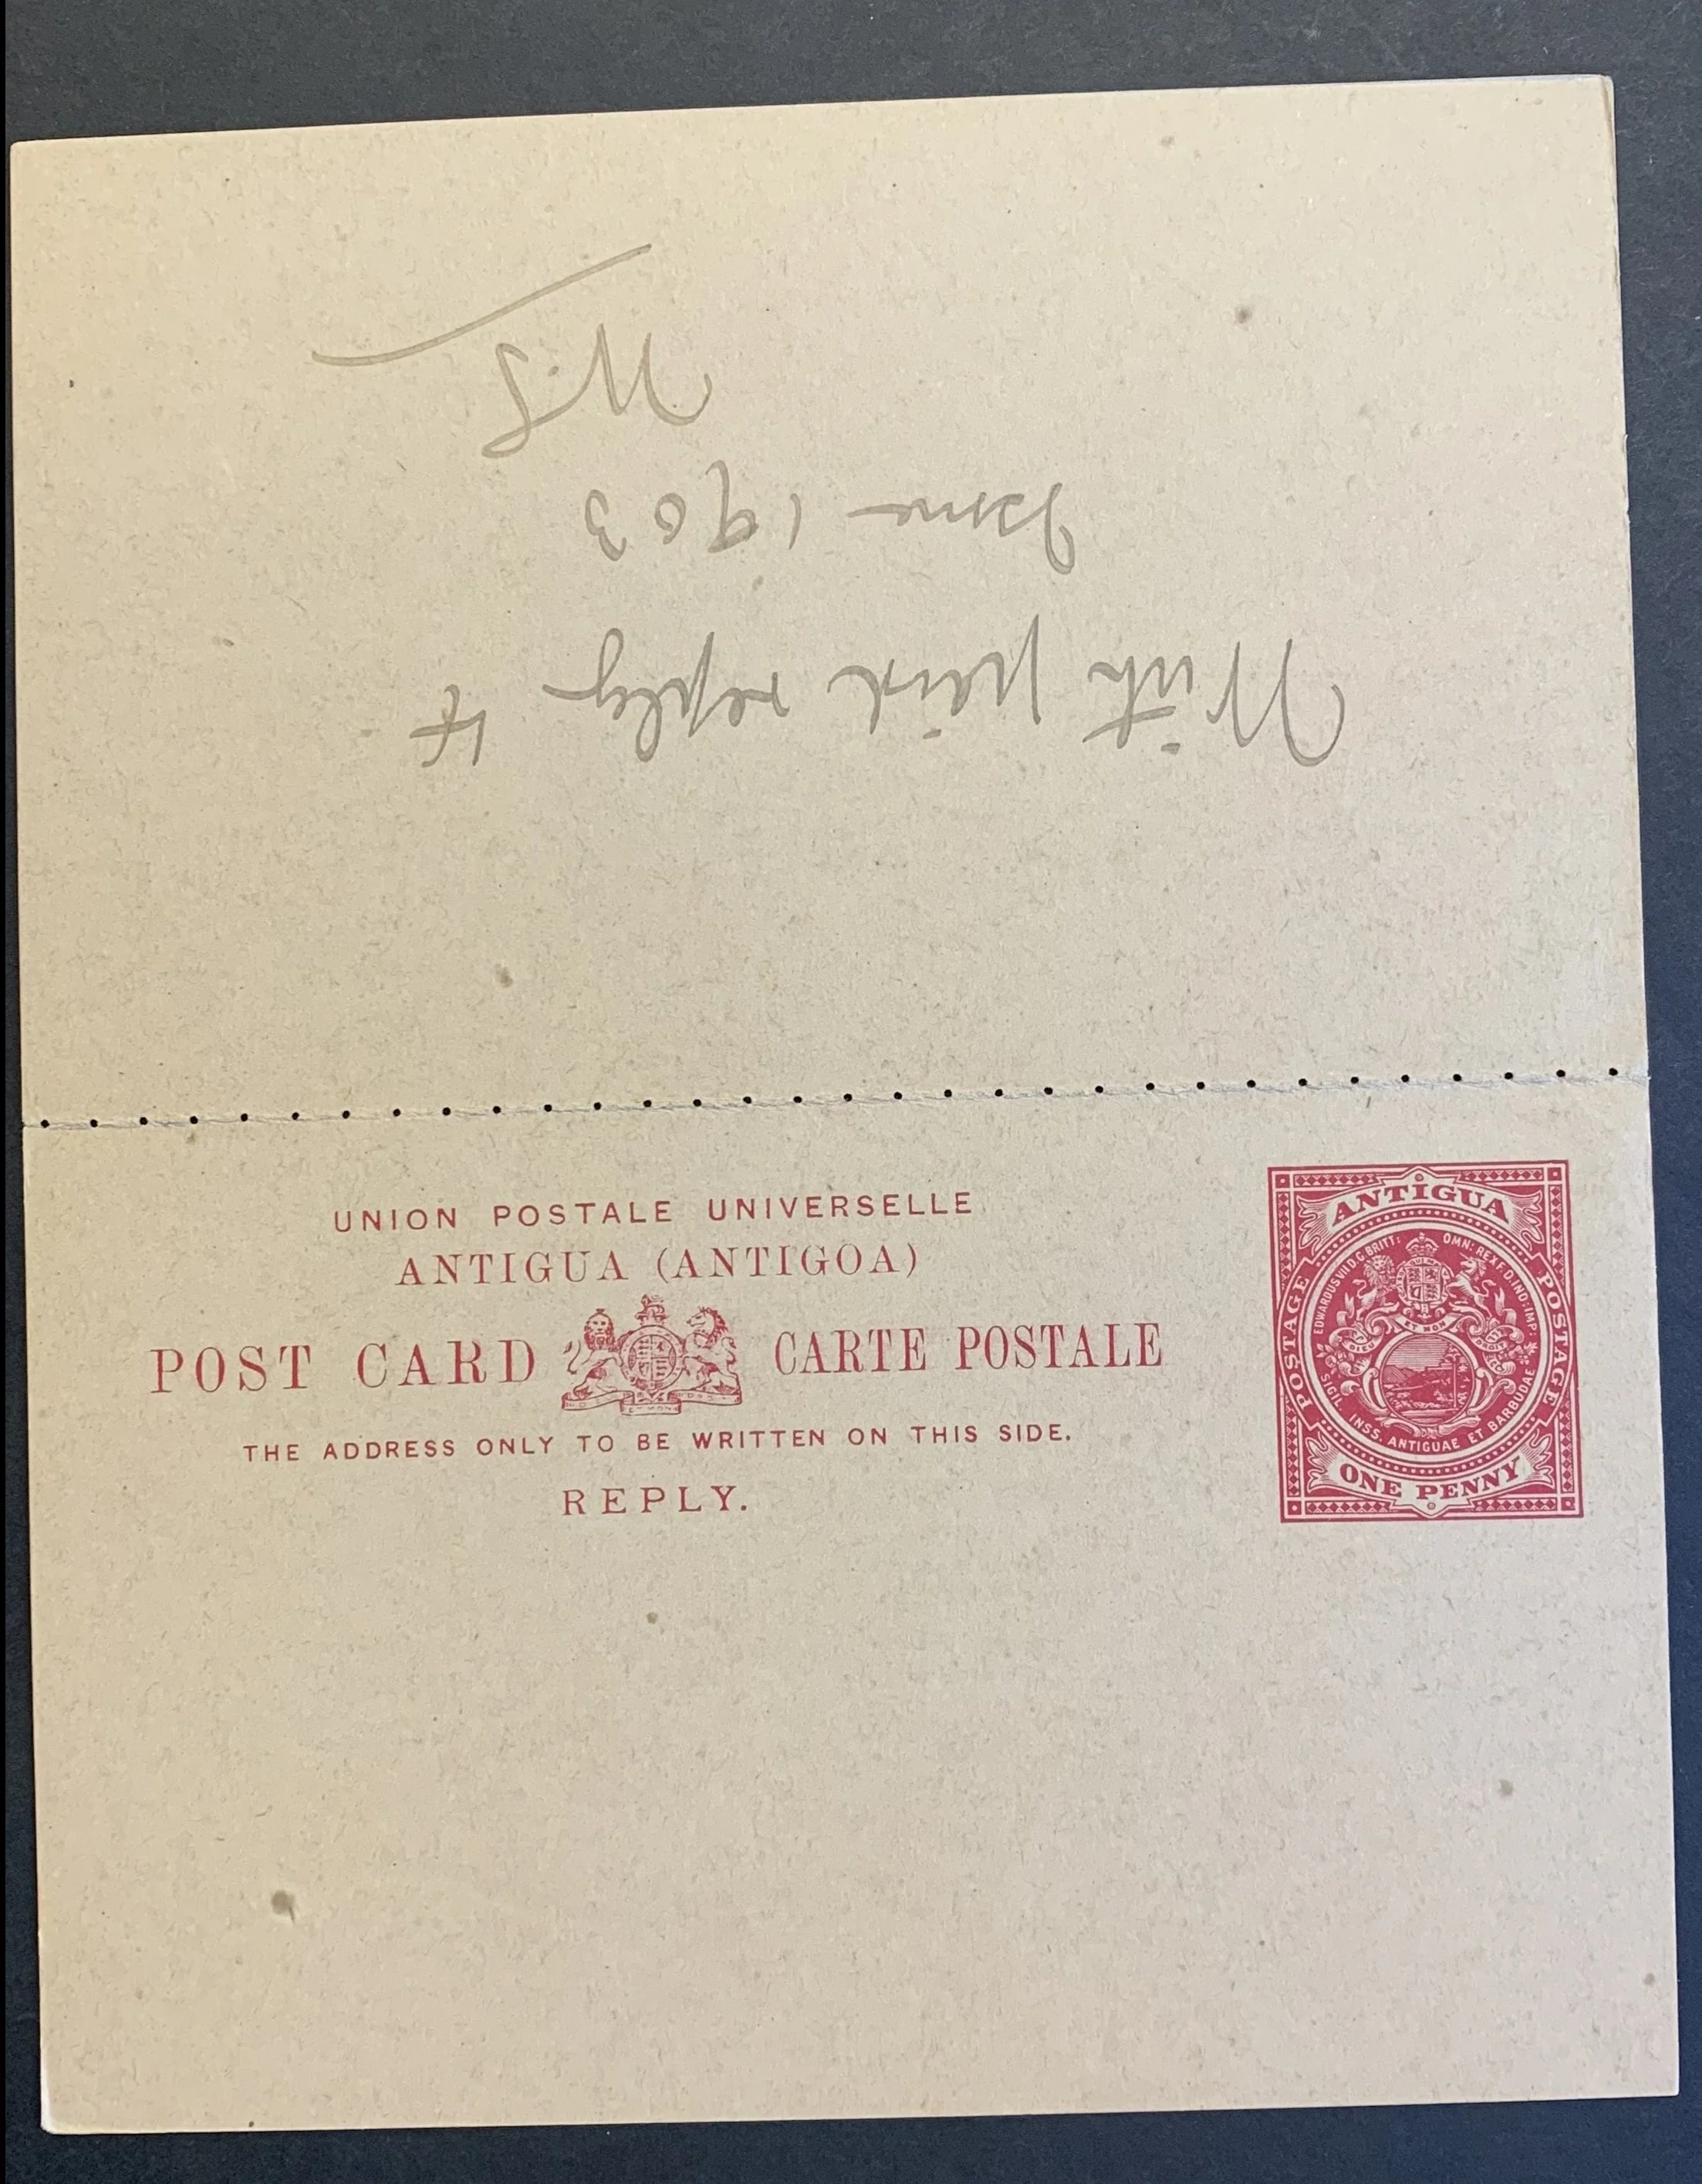 With paid reply
Issue 1903
UNION POSTALE UNIVERSELLE
ANTIGUA (ANTIGOA)
POST CARD CARTE POSTALE
THE ADDRESS ONLY TO BE WRITTEN ON THIS SIDE.
REPLY.
ANTIGUA
POSTAGE
POSTAGE
EDWARDUS VII D:G:BRITT: OMN: REX F.D. IND: IMP:
SIGIL INSS. ANTIGUAE ET BARBUDAE
ONE PENNY